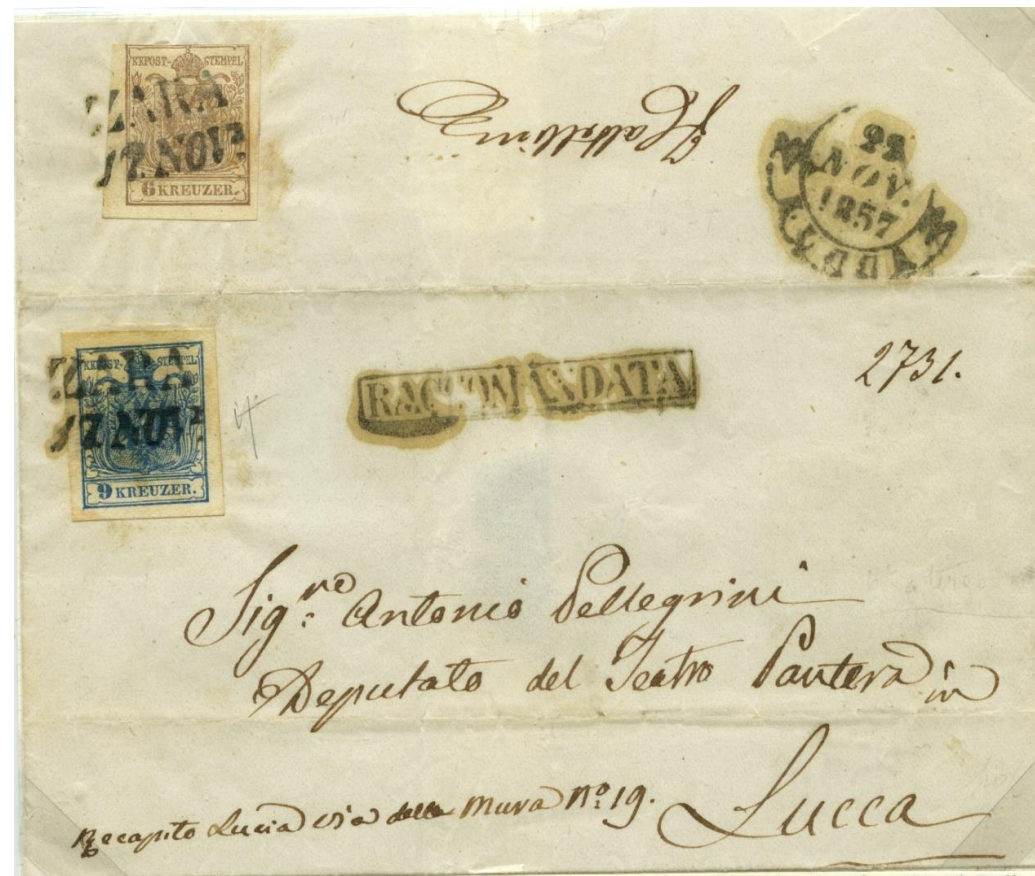 KKPOST-STEMPEL
ZARA
17 NOV.
6 KREUZER.
22
NOV.
1857
KKPOST-STEMPEL
ZARA
17 NOV.
9 KREUZER.
RACCOMANDATA
2731.
Sig.re Antonio Pellegrini
Deputato del Teatro Pantera in
Lucca
Recapito Lucia via delle Mura No: 19.